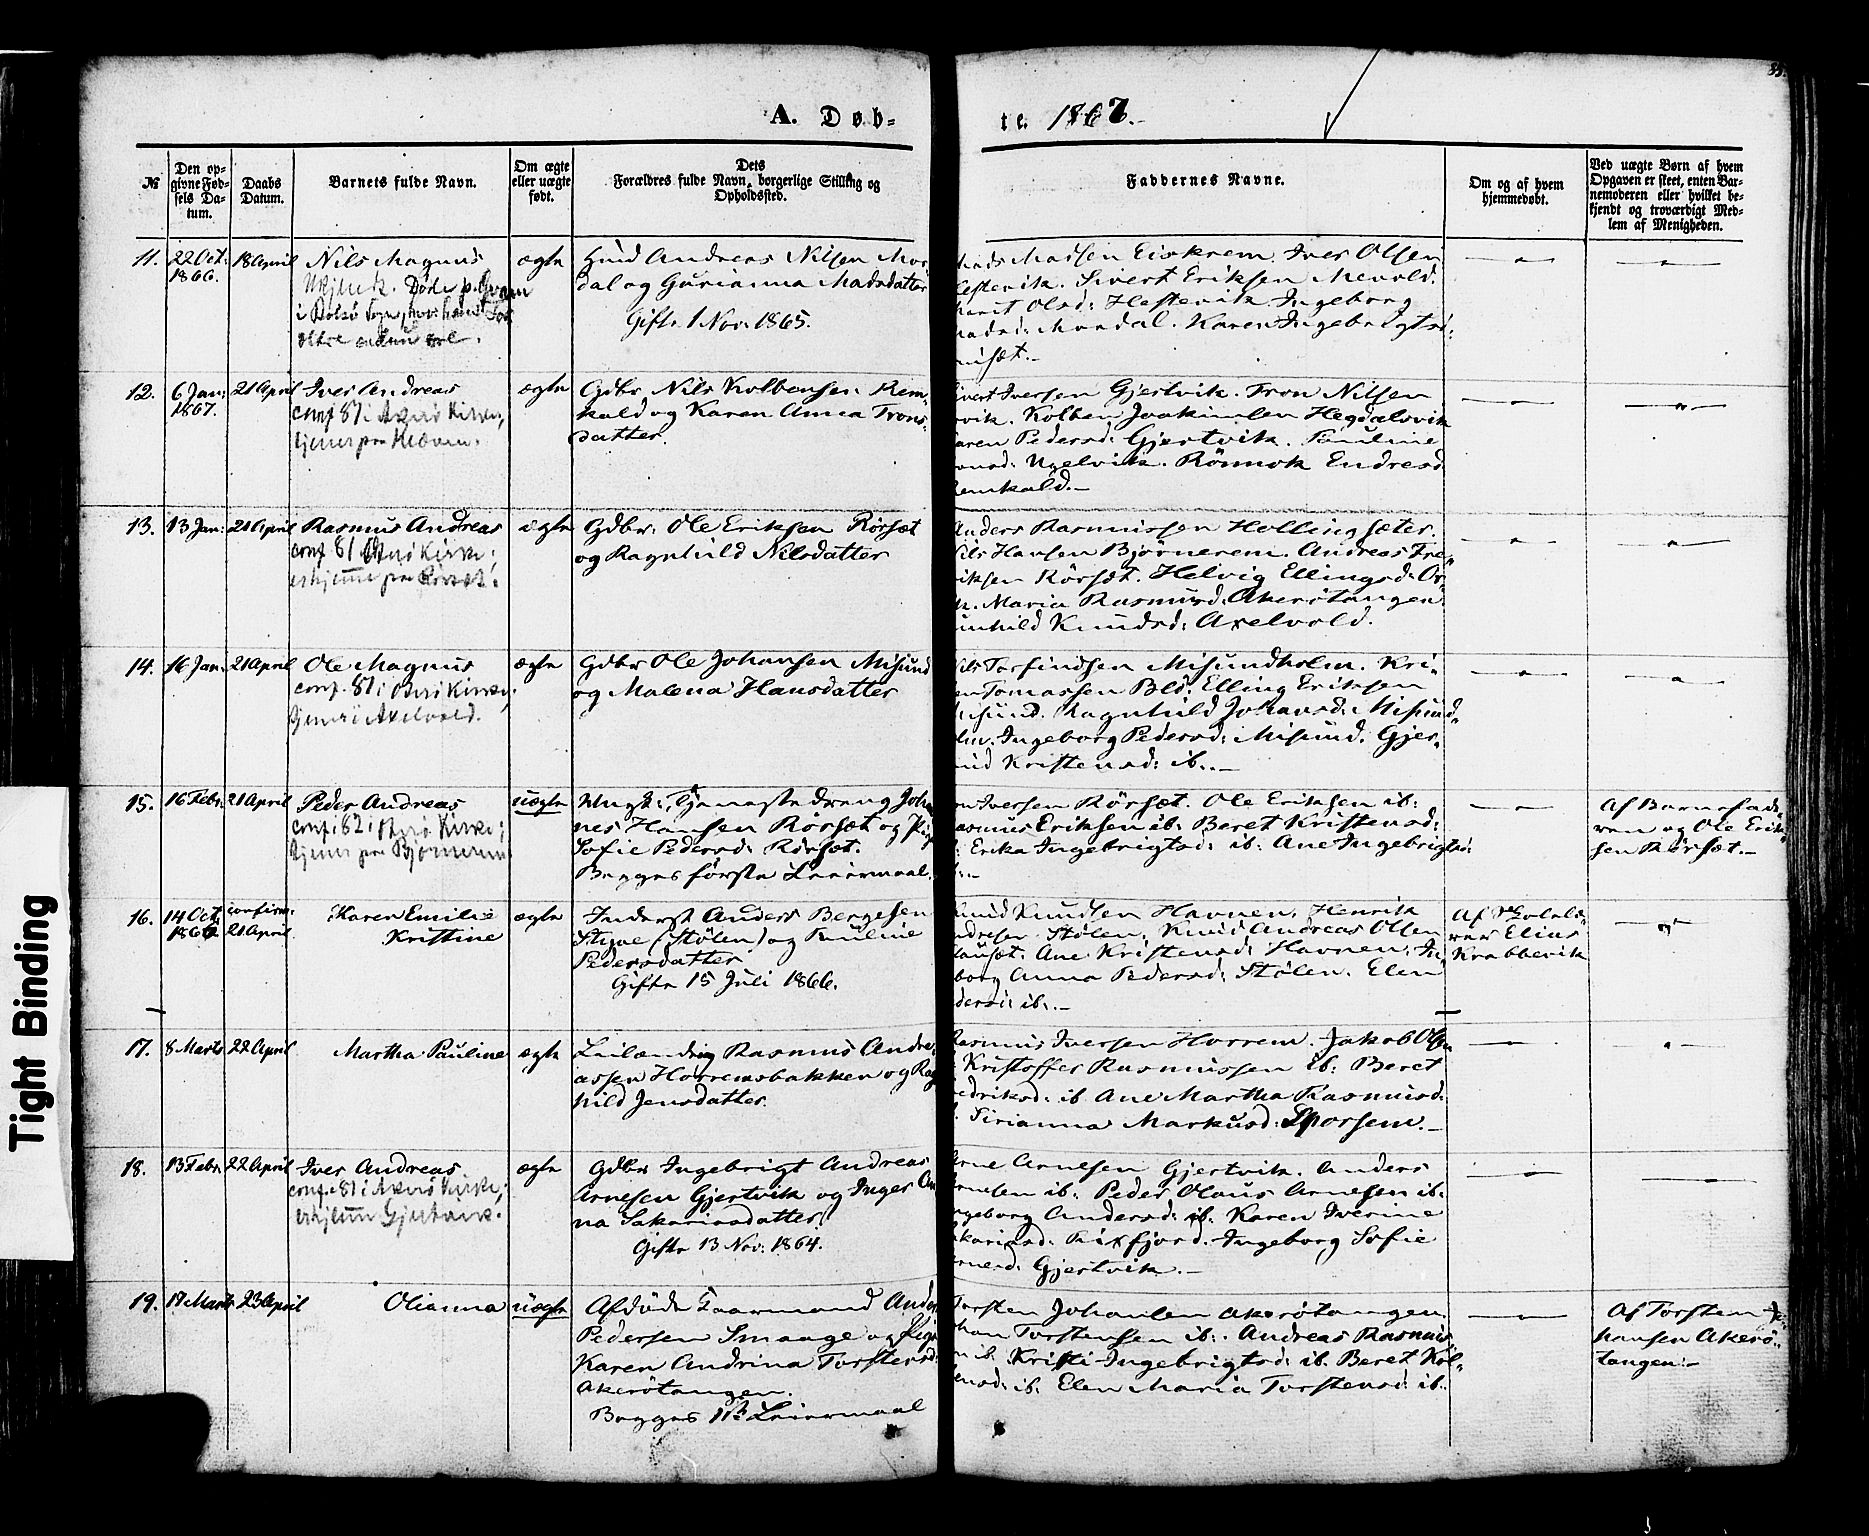 A. Døb-
te. 1867.
85.
Tight Binding
№
Den op-
givne Fød-
sels Da-
tum.
Daabs
Datum.
Barnets fulde Navn.
Om ægte
eller uægte
født.
Dets
Forældres fulde Navn, borgerlige Stilling og
Opholdssted.
Faddernes Navne.
Om og af hvem
hjemmedøbt.
Ved uægte Børn af hvem
Opgaven er skeet, enten Bar-
nemoderen eller hvilket be-
kjendt og troværdigt Med-
lem af Menigheden.
11.
22 Oct.
1866.
18 April
Nils Magnus
ægte
Andreas Nilsen
dal og Gurianna Madsdatter
Gift 1 Nov: 1865.
Madsen Eiskrem. Iver Olsen
Hestevik. Sivert Eriksen Mevold.
Olsd: Hestevik. Ingeborg
Mordal. Karen Ingebrigtsd:
12.
6 Jan:
1867.
21 April
Iver Andreas
conf 81 i Akerø Kirke,
ægte
Gdbr. Nils Kolbensen Rem-
kald og Karen Anna Trons-
datter.
Iversen Gjestvik. Tron Nilsen
Kolben Joakimsen Hegdalsvik
Pedersd: Gjestvik. Pauline
Ugelvik. Rönnok Endresd
Remkald.-
13.
13 Jan:
21 April
Rasmus Andreas
conf 81 Kirke;
ægte
Gdbr: Ole Eriksen Rörsæt
og Ragnhild Nilsdatter
Anders Rasmussen Hollingsæter.
Nils Hansen Bjørnerem. Andreas Fre-
Rörsæt. Helvig Ellingsd:
Maria Rasmusd: Akerötangen
Knudsd: Axelvold.
14.
16 Jan:
21 April
Ole Magnus
conf. 81 i Kirke;
tjener i Axelvold.
ægte
Gdbr Ole Johansen Misund
og Malena Hansdatter
Nils Torfindsen Misundholm. Kri-
Tomassen Bld: Elling Eriksen
Misund. Ragnhild Johansd: Misund-
Ingeborg Pedersd: Misund. Gjer-
Kristensd: ib..-
15.
16 Febr:
21 April
Peder Andreas
conf: 82 i Kirke;
tjener paa Bjørnerem
uægte
Ungk: Tjenestedreng Johan-
nes Hansen Rörsæt og Pige
Sofie Pedersd: Rörsæt.
Begges første Leiermaal.
Iversen Rörsæt. Ole Eriksen ib:
Rasmus Eriksen ib: Beret Kristensd:
Erika Ingebrigtsd: ib: Ane Ingebrigtsd:
Af Barnefade-
ren og Ole Erik-
sen Rörsæt.-
16.
14 Oct.
1866
confirm:
21 April
Karen Emilie
Kristine
ægte
Inderst Anders Bergesen
(Stölen) og Pauline
Pedersdatter
Gift 15 Juli 1866.
Knud Knudsen Havnen. Henrik
Stölen. Knud Andreas Olsen
Ane Kristensd: Havnen. In-
Anna Pedersd: Stölen. Elen
Pedersd: ib:.-
Af Skolelæ-
rer Elias
Krabbevik
17.
8 Marts
22 April
Martha Pauline
ægte
Leilænding Rasmus Andre-
assen Horremsbakken og Rag-
hild Jensdatter.
Rasmus Iversen Horrem. Jakob Olsen
Kristoffer Rasmussen ib: Beret
ib. Ane Martha Rasmusd:
Sirianna Markusd: Sporsem.-
18.
13 Febr:
22 April
Iver Andreas.
conf. 81 i Akerø Kirke;
ægte
Gdbr Ingebrigt Andreas
Arnesen Gjestvik og Inger An-
na Sakariasdatter.
Gift 13 Nov: 1864.
Arne Arnesen Gjestvik. Anders
Arnesen ib: Peder Olaus Arnesen ib:
Ingeborg Andersd: ib: Karen Iverine
Sakariasd: Rixfjord. Ingeborg Sofie
Gjestvik.-
19.
17 Marts
23 April
Olianna
uægte
Afdöde Gaarmand Anders
Pedersen Smaage og Pige
Karen Andrina Torstensd:
Akerötangen.
Begges 1ste Leiermaal
Torsten Johansen Akerötangen
Johan Torstensen ib:. Andreas Rasmus-
ib. Kristi Ingebrigtsd: ib. Beret Kol-
bensd: ib: Elen Maria Torstensd: ib.
Af Torsten Jo-
hansen Akerö-
tangen:-